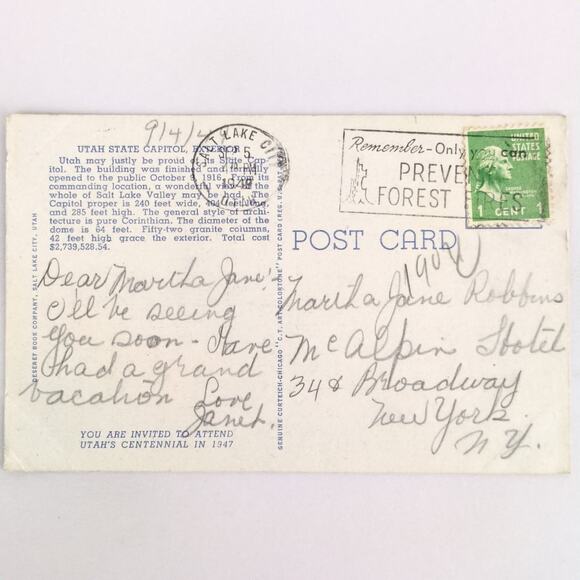 9/4/4
UTAH STATE CAPITOL, EXTERIOR
Utah may justly be proud of its State Cap-
itol. The building was finished and formally
opened to the public October 9, 1916. From its
commanding location, a wonderful view of the
whole of Salt Lake Valley may be had. The
Capitol proper is 240 feet wide, 404 feet long,
and 285 feet high. The general style of archi-
tecture is pure Corinthian. The diameter of the
dome is 64 feet. Fifty-two granite columns,
42 feet high grace the exterior. Total cost
$2,739,528.54.
Dear Martha Jane:-
I'll be seeing
you soon - Have
had a grand
vacation Love
Janet.
YOU ARE INVITED TO ATTEND
UTAH'S CENTENNIAL IN 1947
DESERET BOOK COMPANY, SALT LAKE CITY, UTAH
GENUINE CURTEICH-CHICAGO "C.T. ART-COLORTONE" POST CARD (REG. U.S. PAT. OFF.)
SALT LAKE CITY
SEP 5
PM
UTAH
Remember - Only you can
PREVENT
FOREST FIRES
UNITED
STATES
POSTAGE
1 CENT 1
POST CARD
1904
Martha Jane Robbins
McAlpin Hotel
34 & Broadway
New York.
N.Y.